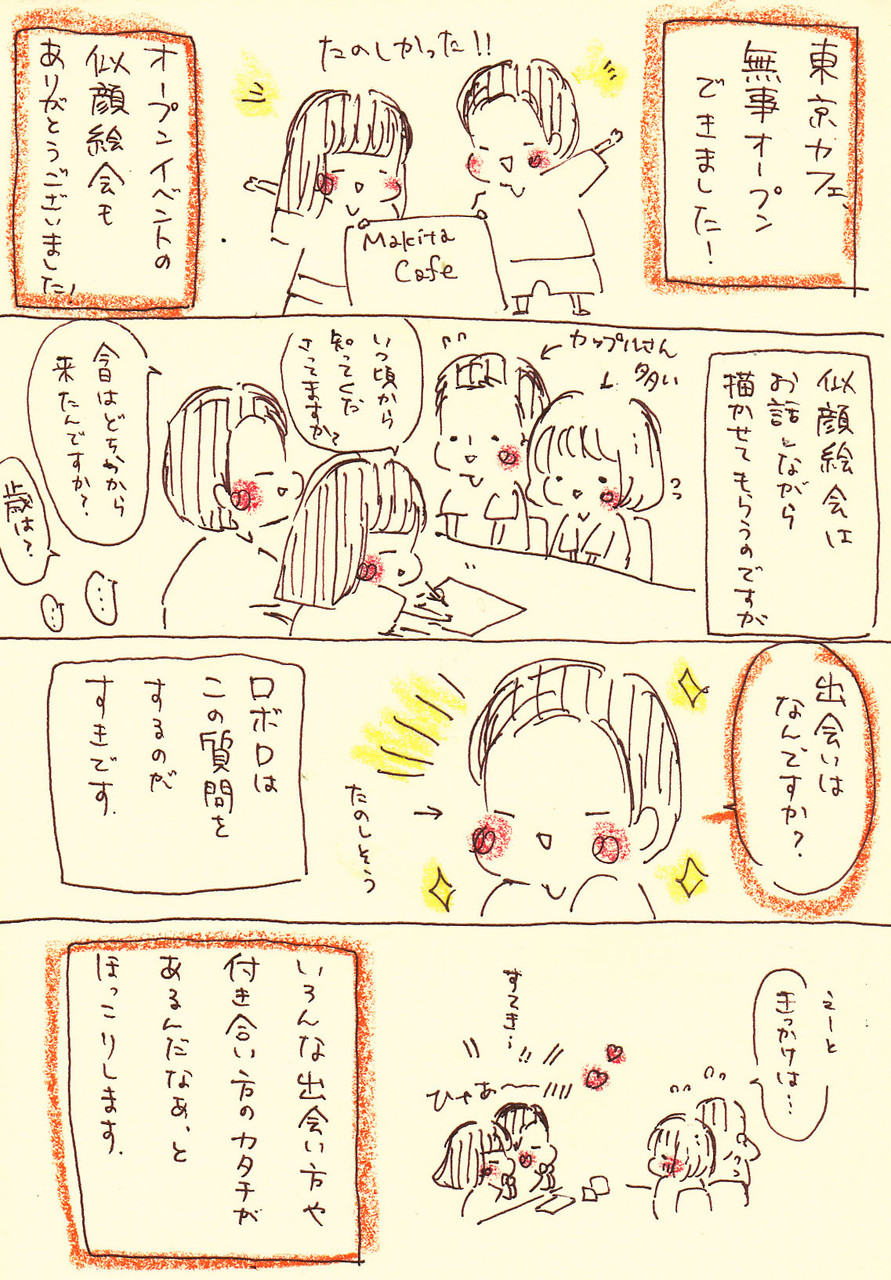 東京カフェ、
無事オープン
できました!
たのしかった!!
Makita
Cafe
オープンイベントの
似顔絵会も
ありがとうございました!
似顔絵会は
お話しながら
描かせてもらうのですが
カップルさん
多い
いつ頃から
知ってくだ
さってますか?
今日はどちらから
来たんですか?
歳は?
出会いは
なんですか?
たのしそう
ロボロは
この質問を
するのが
すきです.
えーと
きっかけは…
すてき…!!
ひゃあ〜
いろんな出会い方や
付き合い方のカタチが
あるんだなぁ、と
ほっこりします.